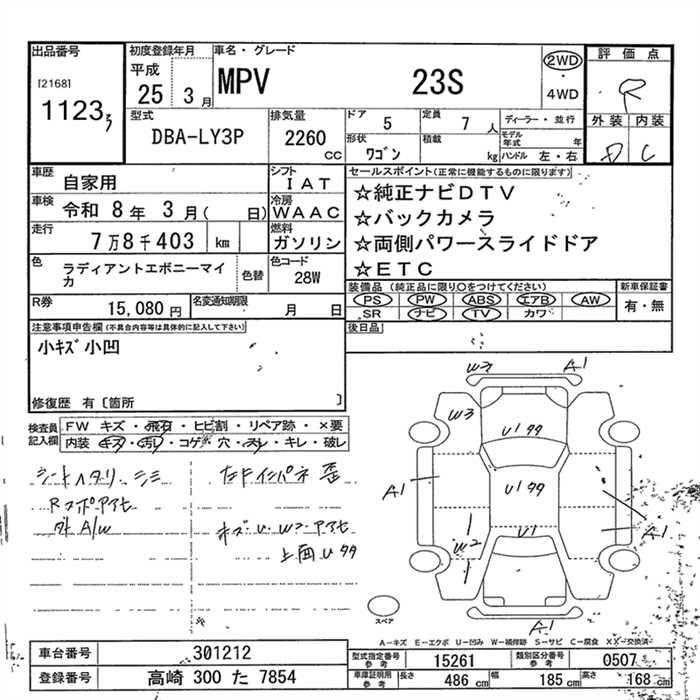 出品番号
[2168]
1123
初度登録年月
平成
25 3月
車名・グレード
MPV 23S
2WD
・
4WD
評価点
R
外装 内装
D C
型式
DBA-LY3P
排気量
2260
cc
ドア 5
定員 7人
形状 ワゴン
積載 kg
ディーラー・並行
モデル年式 年
ハンドル 左・右
車歴 自家用
シフト IAT
車検 令和 8年 3月( 日)
冷房 WAAC
走行 7万8千403 km
燃料 ガソリン
色 ラディアントエボニーマイカ
色替
色コード 28W
R券 15,080円
名変通知期限 月 日
セールスポイント(正常に機能するものに限ります)
☆純正ナビDTV
☆バックカメラ
☆両側パワースライドドア
☆ETC
装備品 (純正品に限り○をつけてください)
PS PW ABS エアB AW
SR ナビ TV カワ
新車保証書
有・無
後日品
注意事項申告欄(不具合内容等は具体的に記入して下さい)
小キズ 小凹
修復歴 有〔箇所 〕
検査員記入欄
FW キズ・飛石・ヒビ割・リペア跡・×要
内装 キズ・汚れ・コゲ・穴・スレ・キレ・破レ
シートヘタリ シミ
Rスポアセ
外A/W
左Fインパネ 歪
キズ U W2 アセ
上面Uタタ
W3 A1
W3
U1タタ
A1
U1タタ
A1
W2
U1
A1
A1
スペア
A-キズ E-エクボ U-凹み W-補修跡 S-サビ C-腐食 XX-交換済
車台番号 301212
登録番号 高崎 300 た 7854
型式指定番号 参考 15261
類別区分番号 参考 0507
車庫証明用 参考 長さ 486cm 幅 185cm 高さ 168cm